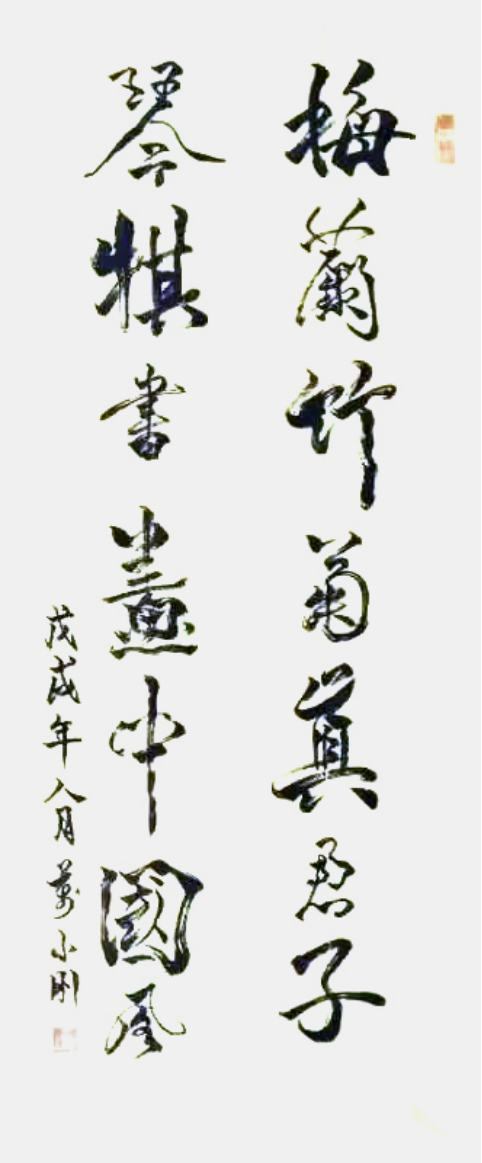 梅蘭竹菊真君子
琴棋書畫中國风
戊戌年八月萬小刚